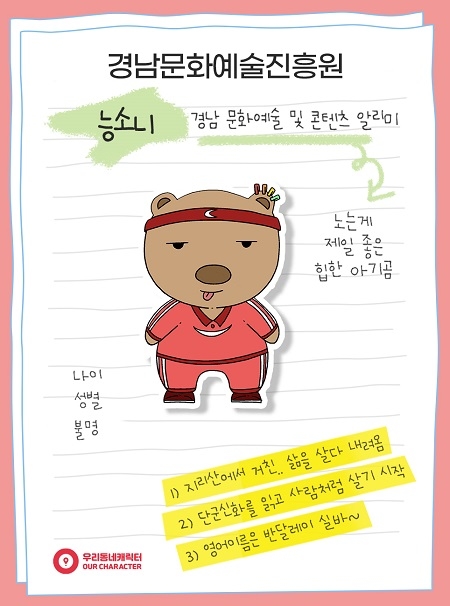 경남문화예술진흥원
능소니
경남 문화예술 및 콘텐츠 알리미
노는게
제일 좋은
힙한 아기곰
나이
성별
불명
1) 지리산에서 거친.. 삶을 살다 내려옴
2) 단군신화를 읽고 사람처럼 살기 시작
3) 영어이름은 반달레이 실바~
우리동네캐릭터
OUR CHARACTER